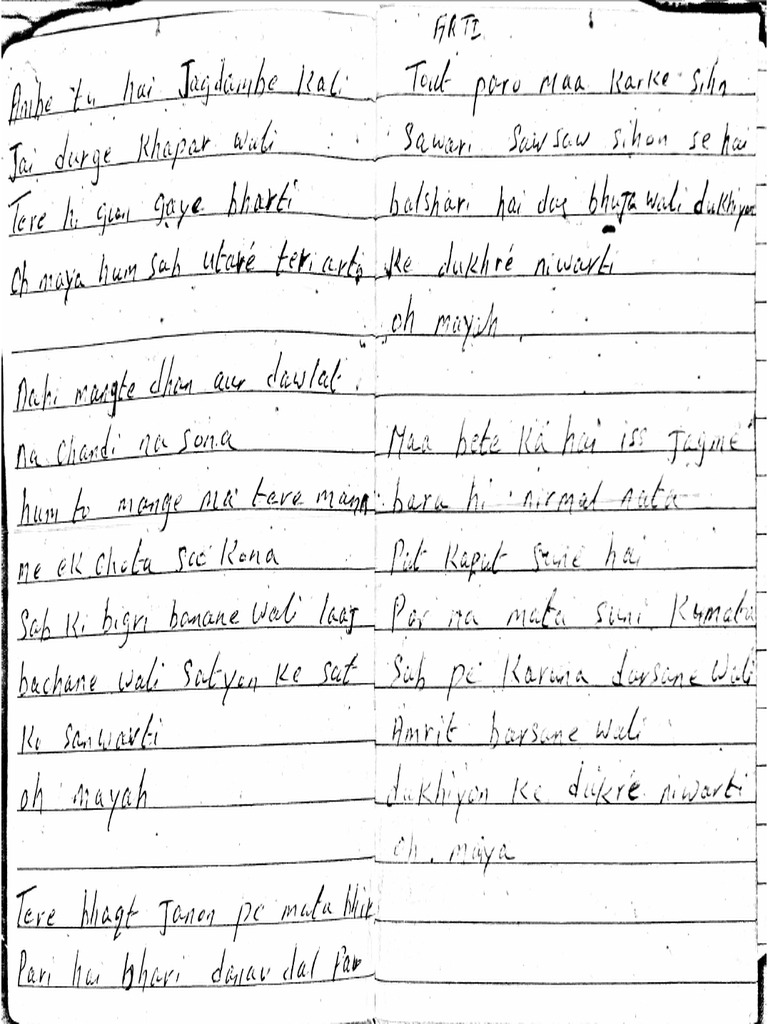 Ambe tu hai Jagdambe Kali
Jai durge Khapar wali
Tere hi gun gaye bharti
Oh maya hum sab utaré teri arti
Nahi mangte dhan aur dawlat
na chandi na sona
hum to mange ma tere mann
me ek chota sa Kona
Sab Ki bigri banane wali laaj
bachane wali Satyon Ke sat
Ko sanwarti
oh mayah
Tere bhaqt Janon pe mata bhir
Pari hai bhari danav dal Par
ARTI
Tout paro Maa Karke Sihn
Sawari Saw saw sihon se hai
balshari hai das bhuja wali dukhiyon
Ke dukhré niwarti
oh mayah
Maa bete Ka hai iss Jagme
bara hi nirmal nata
Put Kaput suné hai
Par na mata suni Kumata
Sab pe Karuna darsane wali
Amrit barsane wali
dukhiyon Ke dukré niwarti
oh. maya